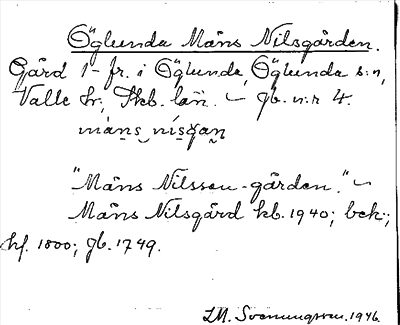 Öglunda Måns Nilsgården.
Gård 1- fr. i Öglunda, Öglunda s:n,
Valle hr, Skb. län. – gb. n:r 4.
måns nisgan
"Måns Nilsson-gården." –
Måns Nilsgård kb. 1940; bek;
hf. 1800; gb. 1749.
LM. Svenungsson. 1946